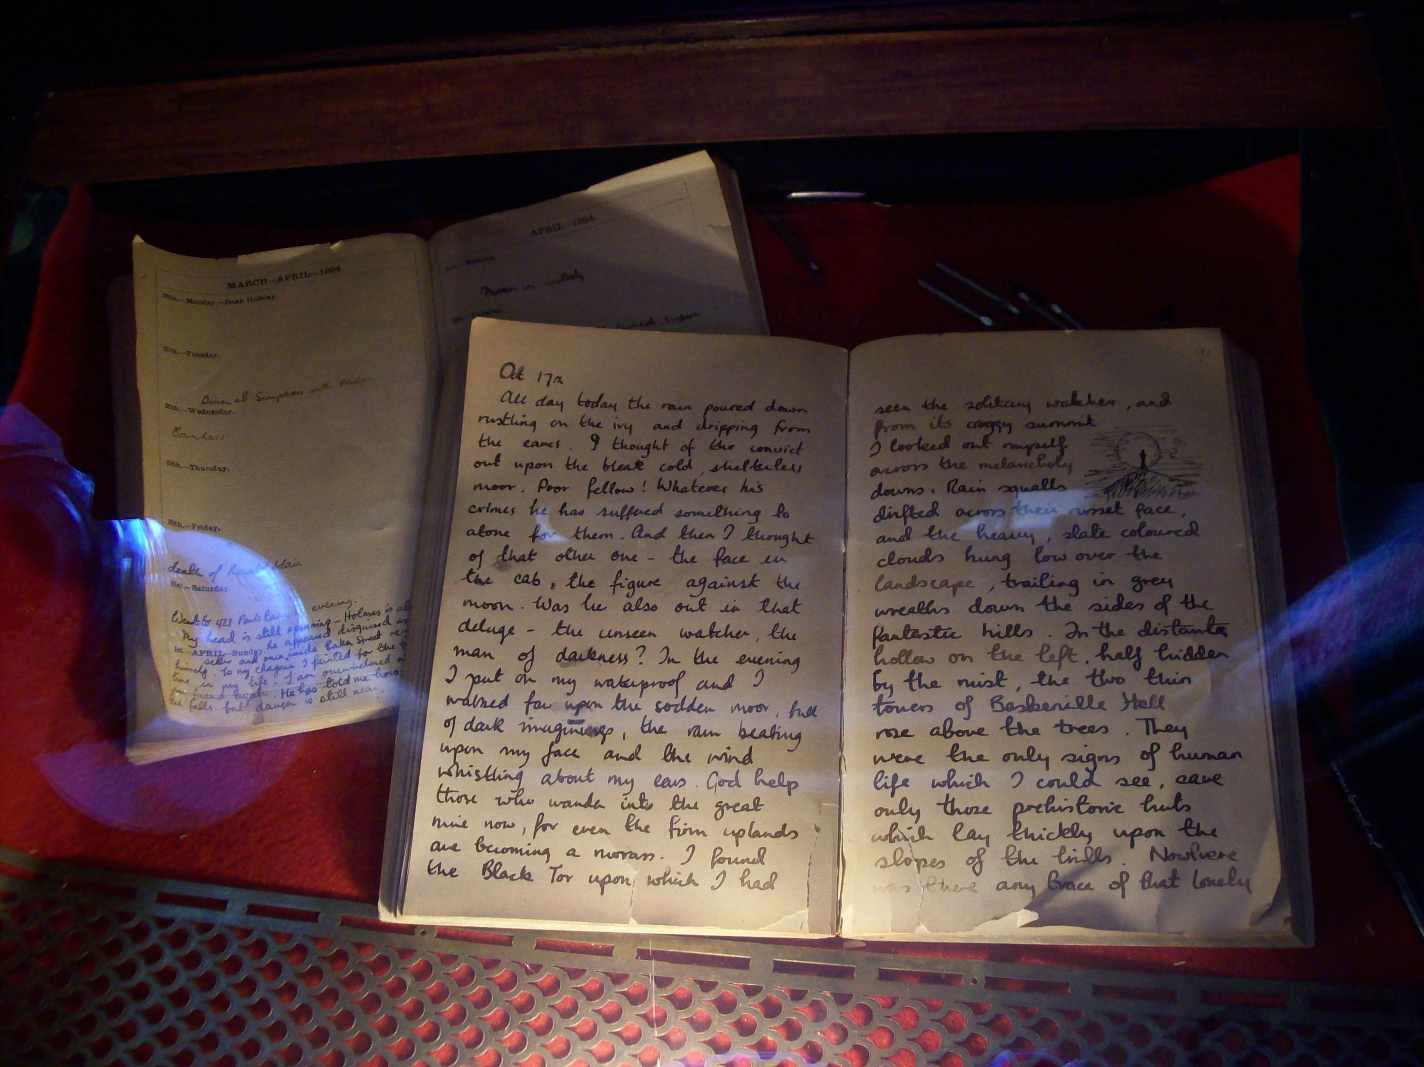 MARCH—APRIL—1894
Monday.—Bank Holiday.
Tuesday.
Dinner at Simpsons with
Wednesday.
Thursday.
Friday.
death of Ronald Adair
Saturday.
Went to 427 Park Lane evening.
My head is still spinning – Holmes is
APRIL Sunday. he appeared disguised
To my chagrin I fainted for the
time in my life. I am overwhelmed
He has told me
the falls. but danger is still near.
APRIL—1894
Oct 17th
All day today the rain poured down
rustling on the ivy and dripping from
the eaves. I thought of the convict
out upon the bleak cold, shelterless
moor. Poor fellow! Whatever his
crimes he has suffered something to
atone for them. And then I thought
of that other one – the face in
the cab, the figure against the
moon. Was he also out in that
deluge – the unseen watcher, the
man of darkness? In the evening
I put on my waterproof and I
walked far upon the sodden moor, full
of dark imaginings, the rain beating
upon my face and the wind
whistling about my ears. God help
those who wander into the great
mire now, for even the firm uplands
are becoming a morass. I found
the Black Tor upon which I had
seen the solitary watcher, and
from its craggy summit
I looked out myself
across the melancholy
downs. Rain squalls
drifted across their russet face,
and the heavy, slate coloured
clouds hung low over the
landscape, trailing in grey
wreaths down the sides of the
fantastic hills. In the distant
hollow on the left, half hidden
by the mist, the two thin
towers of Baskerville Hall
rose above the trees. They
were the only signs of human
life which I could see, save
only those prehistoric huts
which lay thickly upon the
slopes of the hills. Nowhere
was there any trace of that lonely